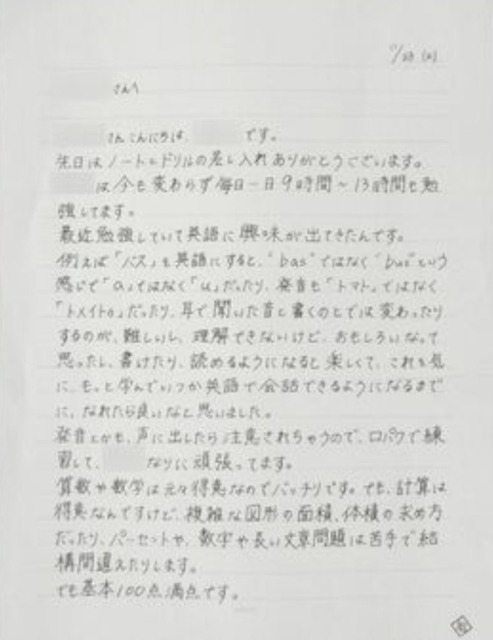 11/28 (火)
さんへ
さんこんにちは、 です。
先日はノートとドリルの差し入れありがとうございます。
は今も変わらず毎日一日9時間~13時間も勉
強してます。
最近勉強していて英語に興味が出てきたんです。
例えば「バス」も英語にすると、"bas"ではなく"bus"という
感じで「a」ではなく「u」だったり、発音も「トマト」ではなく、
「トメイトo」だったり、耳で聞いた音と書くのとでは変わったり
するのが、難しいし、理解できないけど、おもしろいなって
思ったし、書けたり、読めるようになると楽しくて、これを気
に、もっと学んでいつか英語で会話できるようになるまで
に、なれたら良いなと思いました。
発音とかも、声に出したら注意されちゃうので、口パクで練
習して、 なりに頑張ってます。
算数や数学は元々得意なのでバッチリです。でも、計算は
得意なんですけど、複雑な図形の面積、体積の求め方
だったり、パーセットや、数字や長い文章問題は苦手で結
構間違えたりします。
でも基本100点満点です。